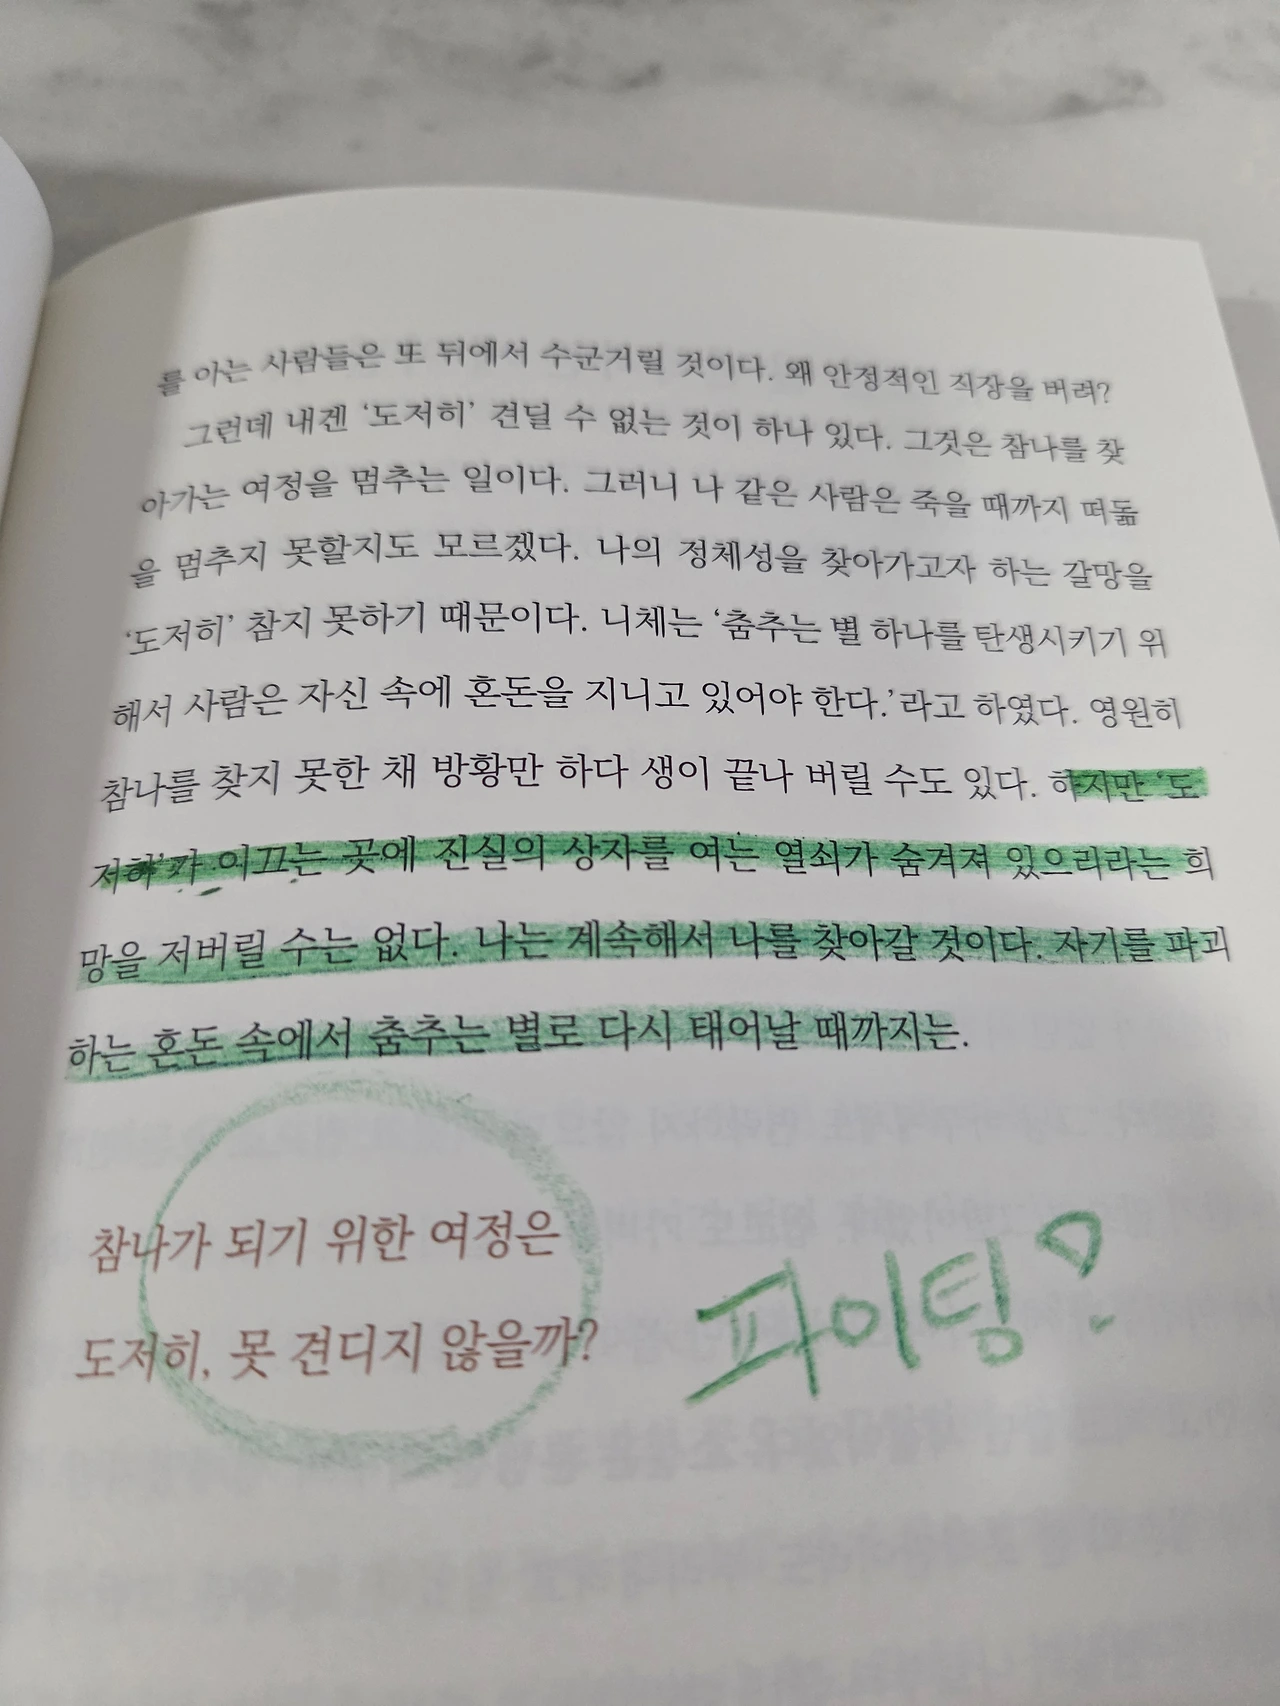 를 아는 사람들은 또 뒤에서 수군거릴 것이다. 왜 안정적인 직장을 버려?
그런데 내겐 ‘도저히’ 견딜 수 없는 것이 하나 있다. 그것은 참나를 찾
아가는 여정을 멈추는 일이다. 그러니 나 같은 사람은 죽을 때까지 떠돎
을 멈추지 못할지도 모르겠다. 나의 정체성을 찾아가고자 하는 갈망을
‘도저히’ 참지 못하기 때문이다. 니체는 ‘춤추는 별 하나를 탄생시키기 위
해서 사람은 자신 속에 혼돈을 지니고 있어야 한다.’라고 하였다. 영원히
참나를 찾지 못한 채 방황만 하다 생이 끝나 버릴 수도 있다. 하지만 ‘도
저히’가 이끄는 곳에 진실의 상자를 여는 열쇠가 숨겨져 있으리라는 희
망을 저버릴 수는 없다. 나는 계속해서 나를 찾아갈 것이다. 자기를 파괴
하는 혼돈 속에서 춤추는 별로 다시 태어날 때까지는.
참나가 되기 위한 여정은
도저히, 못 견디지 않을까?
파이팅!